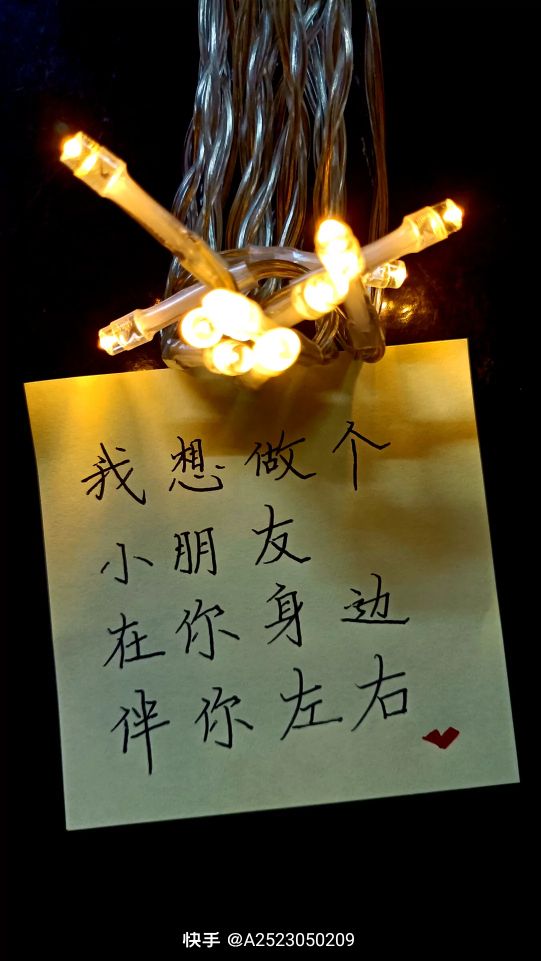 我想做个
小朋友
在你身边
伴你左右
快手 @A2523050209